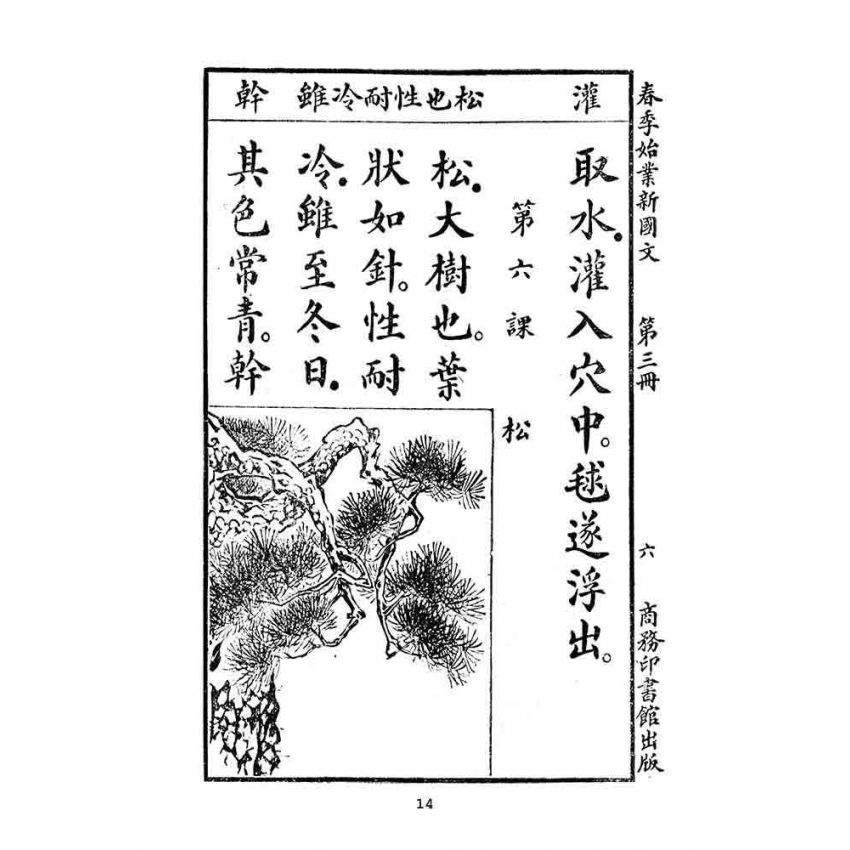 春季始業新國文　第三冊　六　商務印書館出版
灌　松也性耐冷雖　幹
取水．灌入穴中。毬遂浮出。
第六課　松
松．大樹也。葉
狀如針。性耐
冷．雖至冬日．
其色常青。幹
14